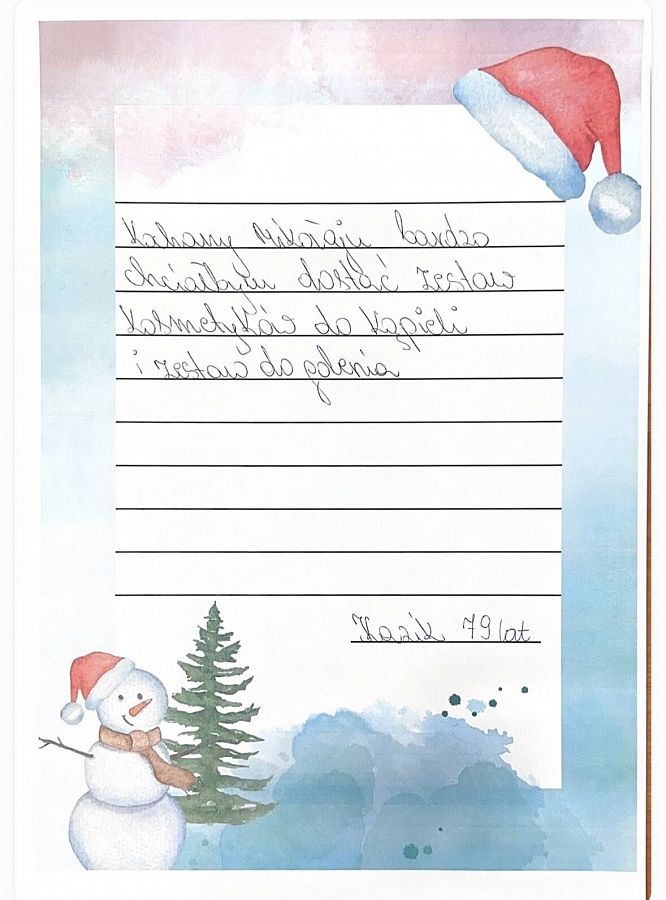 Kohany Mikołaju bardzo
chciałbym dostać zestaw
kosmetyków do kąpieli
i zestaw do golenia
Kazik 79 lat